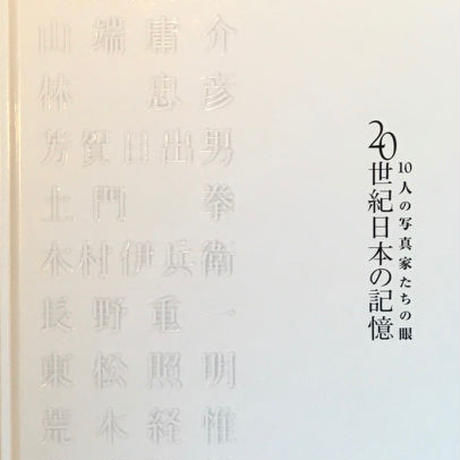 10人の写真家たちの眼
20世紀日本の記憶
山端庸介
林忠彦
芳賀日出男
土門拳
木村伊兵衛
長野重一
東松照明
荒木経惟